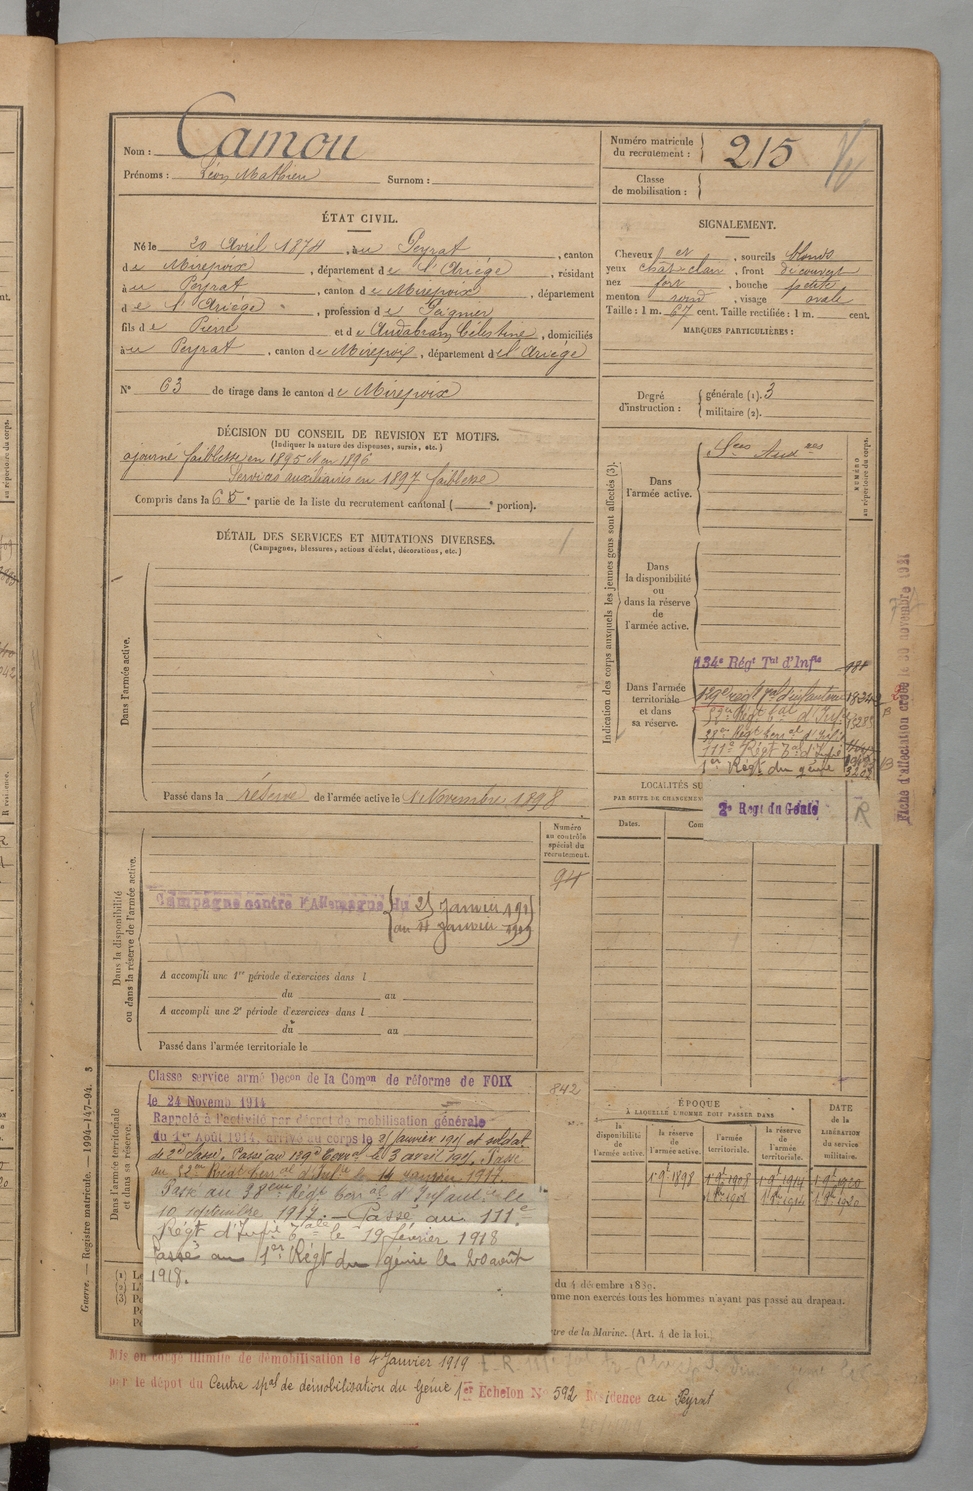 Nom : Camou
Prénoms : Léon Mathieu Surnom :
Numéro matricule du recrutement : 215
Classe de mobilisation :
ÉTAT CIVIL.
Né le 20 Avril 1874, à Peyrat, canton
de Mirepoix, département de l'Ariège, résidant
à Peyrat, canton de Mirepoix, département
de l'Ariège, profession de Peignier
fils de Pierre et de Célestine, domiciliés
à Peyrat, canton de Mirepoix, département de l'Ariège
N° 63 de tirage dans le canton de Mirepoix
SIGNALEMENT.
Cheveux et, sourcils blonds
yeux chat. clair, front découvert
nez fort, bouche petite
menton rond, visage ovale
Taille : 1 m. 67 cent. Taille rectifiée : 1 m. cent.
MARQUES PARTICULIÈRES :
Degré d'instruction : générale (1). 3
militaire (2).
DÉCISION DU CONSEIL DE REVISION ET MOTIFS.
(Indiquer la nature des dispenses, sursis, etc.)
ajourné faiblesse en 1895 et en 1896
Services auxiliaires en 1897 faiblesse
Compris dans la 6e partie de la liste du recrutement cantonal ( e portion).
DÉTAIL DES SERVICES ET MUTATIONS DIVERSES.
(Campagnes, blessures, actions d'éclat, décorations, etc.)
Dans l'armée active.
Passé dans la réserve de l'armée active le 1 Novembre 1898
Indication des corps auxquels les jeunes gens sont affectés (3).
NUMÉRO au répertoire du corps.
Dans l'armée active.
Sces Auxres
Dans la disponibilité ou dans la réserve de l'armée active.
Dans l'armée territoriale et dans sa réserve.
134e Régt Tal d'Infie
129e regt
111e Régt Tal d'Inf
1er Régt du génie
2e Regt du Génie
R
Fiche d'affectation créée le 30 novembre
LOCALITÉS SU
PAR SUITE DE CHANGEMEN
Dates.
Com
Numéro au contrôle spécial du recrutement.
94
Dans la disponibilité ou dans la réserve de l'armée active.
Campagne contre l'Allemagne du 25 Janvier 1915
au 4 Janvier 1919
A accompli une 1re période d'exercices dans l
du au
A accompli une 2e période d'exercices dans l
du au
Passé dans l'armée territoriale le
Dans l'armée territoriale et dans sa réserve.
842
Classe service armé Decon de la Comon de réforme de FOIX
le 24 Novemb 1914
Rappelé à l'activité par décret de mobilisation générale
du 1er Août 1914, arrivé au corps le 25 Janvier 1915 et soldat
de 2e classe, Passé au 129e Terral le 3 avril 1915. Passé
Passé au 38eme Régt terral d'Infanterie le
10 septembre 1917. — Passé au 111e
Régt d'Infie Tale le 19 février 1918
Passé au 1er Régt du génie le 20 août
1918.
ÉPOQUE
À LAQUELLE L'HOMME DOIT PASSER DANS
DATE DE LA LIBÉRATION du service militaire.
la disponibilité de l'armée active.
la réserve de l'armée active.
l'armée territoriale.
la réserve de l'armée territoriale.
1 9e 1898 1 9e 1908 1 9e 1914 1 9e 1920
du 4 décembre 1889.
omme non exercés tous les hommes n'ayant pas passé au drapeau.
tre de la Marine. (Art. 4 de la loi.)
Guerre. — Registre matricule. — 1994-147-94. 3
Mis en congé illimité de démobilisation le 4 Janvier 1919
par le dépot du Centre spal de démobilisation du Génie 1er Echelon N° 592 Résidence au Peyrat